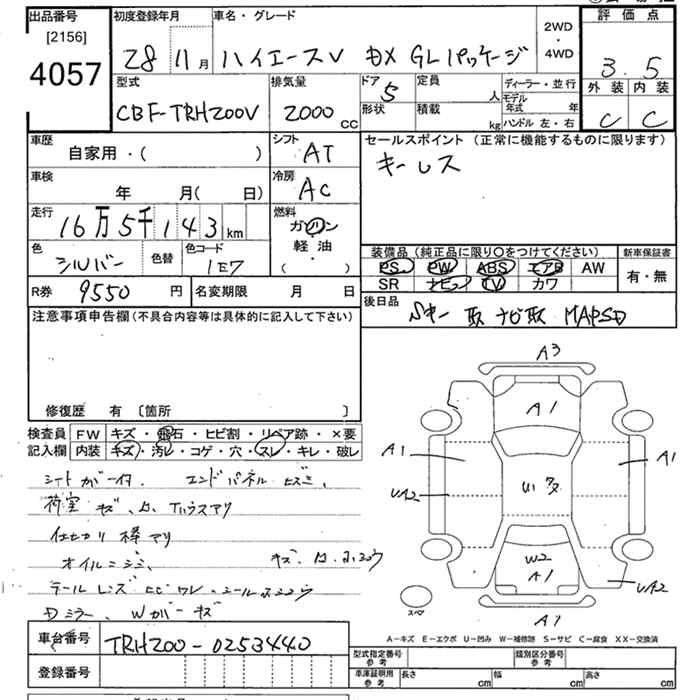 出品番号 初度登録年月 車名・グレード 2WD・4WD 評価点
[2156]
4057 28 11月 ハイエースV DX GLパッケージ 3.5
外装 内装
C C
型式 排気量 ドア 定員 ディーラー・並行
CBF-TRH200V 2000cc 5 人 モデル年式 年
形状 積載 kg ハンドル 左・右
車歴 シフト セールスポイント (正常に機能するものに限ります)
自家用・( ) AT キーレス
車検 冷房
年 月( 日) AC
走行 燃料
16万5千143km ガソリン
軽油
・( )
色 色替 色コード
シルバー 1E7
装備品 (純正品に限り○をつけてください) 新車保証書
PS PW ABS エアB AW 有・無
SR ナビ TV カワ
R券 9550円 名変期限 月 日
後日品 Sキー 取 ナビ取 MAPSD
注意事項申告欄 (不具合内容等は具体的に記入して下さい)
修復歴 有 〔箇所 〕
検査員記入欄 FW キズ・飛石・ヒビ割・リペア跡・×要
内装 キズ・汚レ・コゲ・穴・スレ・キレ・破レ
シートカバー付、エンドパネルヒズミ、
荷室 キズ、凹、
仕切り棒アリ
オイルニジミ キズ、凹、
テールレンズ ワレ、
Dミラー、Wカバーキズ
A3
A1
A1 A1
UA2 U1多
W2
A1
UA2
スペア
A1
A-キズ E-エクボ U-凹み W-補修跡 S-サビ C-腐食 XX-交換済
車台番号 TRH200-0253440
登録番号
型式指定番号 参考 類別区分番号 参考
車庫証明用 参考 長さ cm 幅 cm 高さ cm